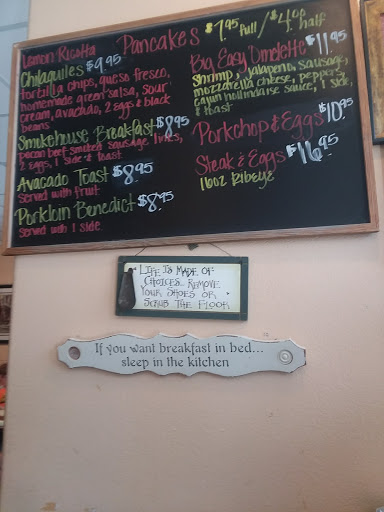 Lemon Ricotta Pancakes $7.95 full / $4.00 half
Chilaquiles $9.95
tortilla chips, queso fresco,
homemade green salsa, sour
cream, avacado, 2 eggs & black
beans
Smokehouse Breakfast $8.95
pecan beef smoked sausage links,
2 eggs, 1 side & toast
Avacado Toast $8.95
served with fruit
Porkloin Benedict $8.95
served with 1 side
Big Easy Omelette $11.95
shrimp, jalapeno, sausage,
mozzarella cheese, peppers,
cajun hollindaise sauce, 1 side
& toast
Porkchop & Eggs $10.95
Steak & Eggs $16.95
16oz Ribeye
LIFE IS MADE OF
CHOICES. REMOVE
YOUR SHOES OR
SCRUB THE FLOOR
If you want breakfast in bed...
sleep in the kitchen